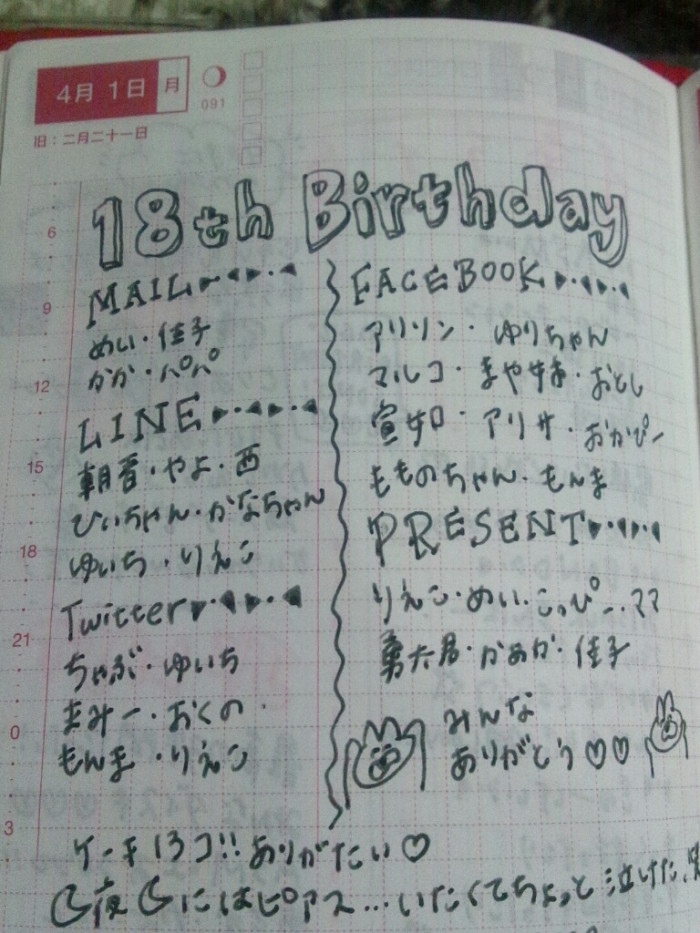 4月 1日 月
091
旧：二月二十一日
18th Birthday
6
9
12
15
18
21
0
3
MAIL
めい・佳子
かか・パパ
LINE
朝音・やよ・西
ひいちゃん・かなちゃん
ゆいち・りえこ
Twitter
ちゃぶ・ゆいち
まみー・おくの
もんま・りえこ
FACEBOOK
アリソン・ゆりちゃん
マルコ・まやすま・おとし
アリサ・おかぴー
もものちゃん・もんま
PRESENT
りえこ・めい・こっぴー・ママ
勇太君・かあか・佳子
みんな
ありがとう♡♡
ケーキ13コ!!ありがたい♡
夜にはピアス…いたくてちょっと泣けた